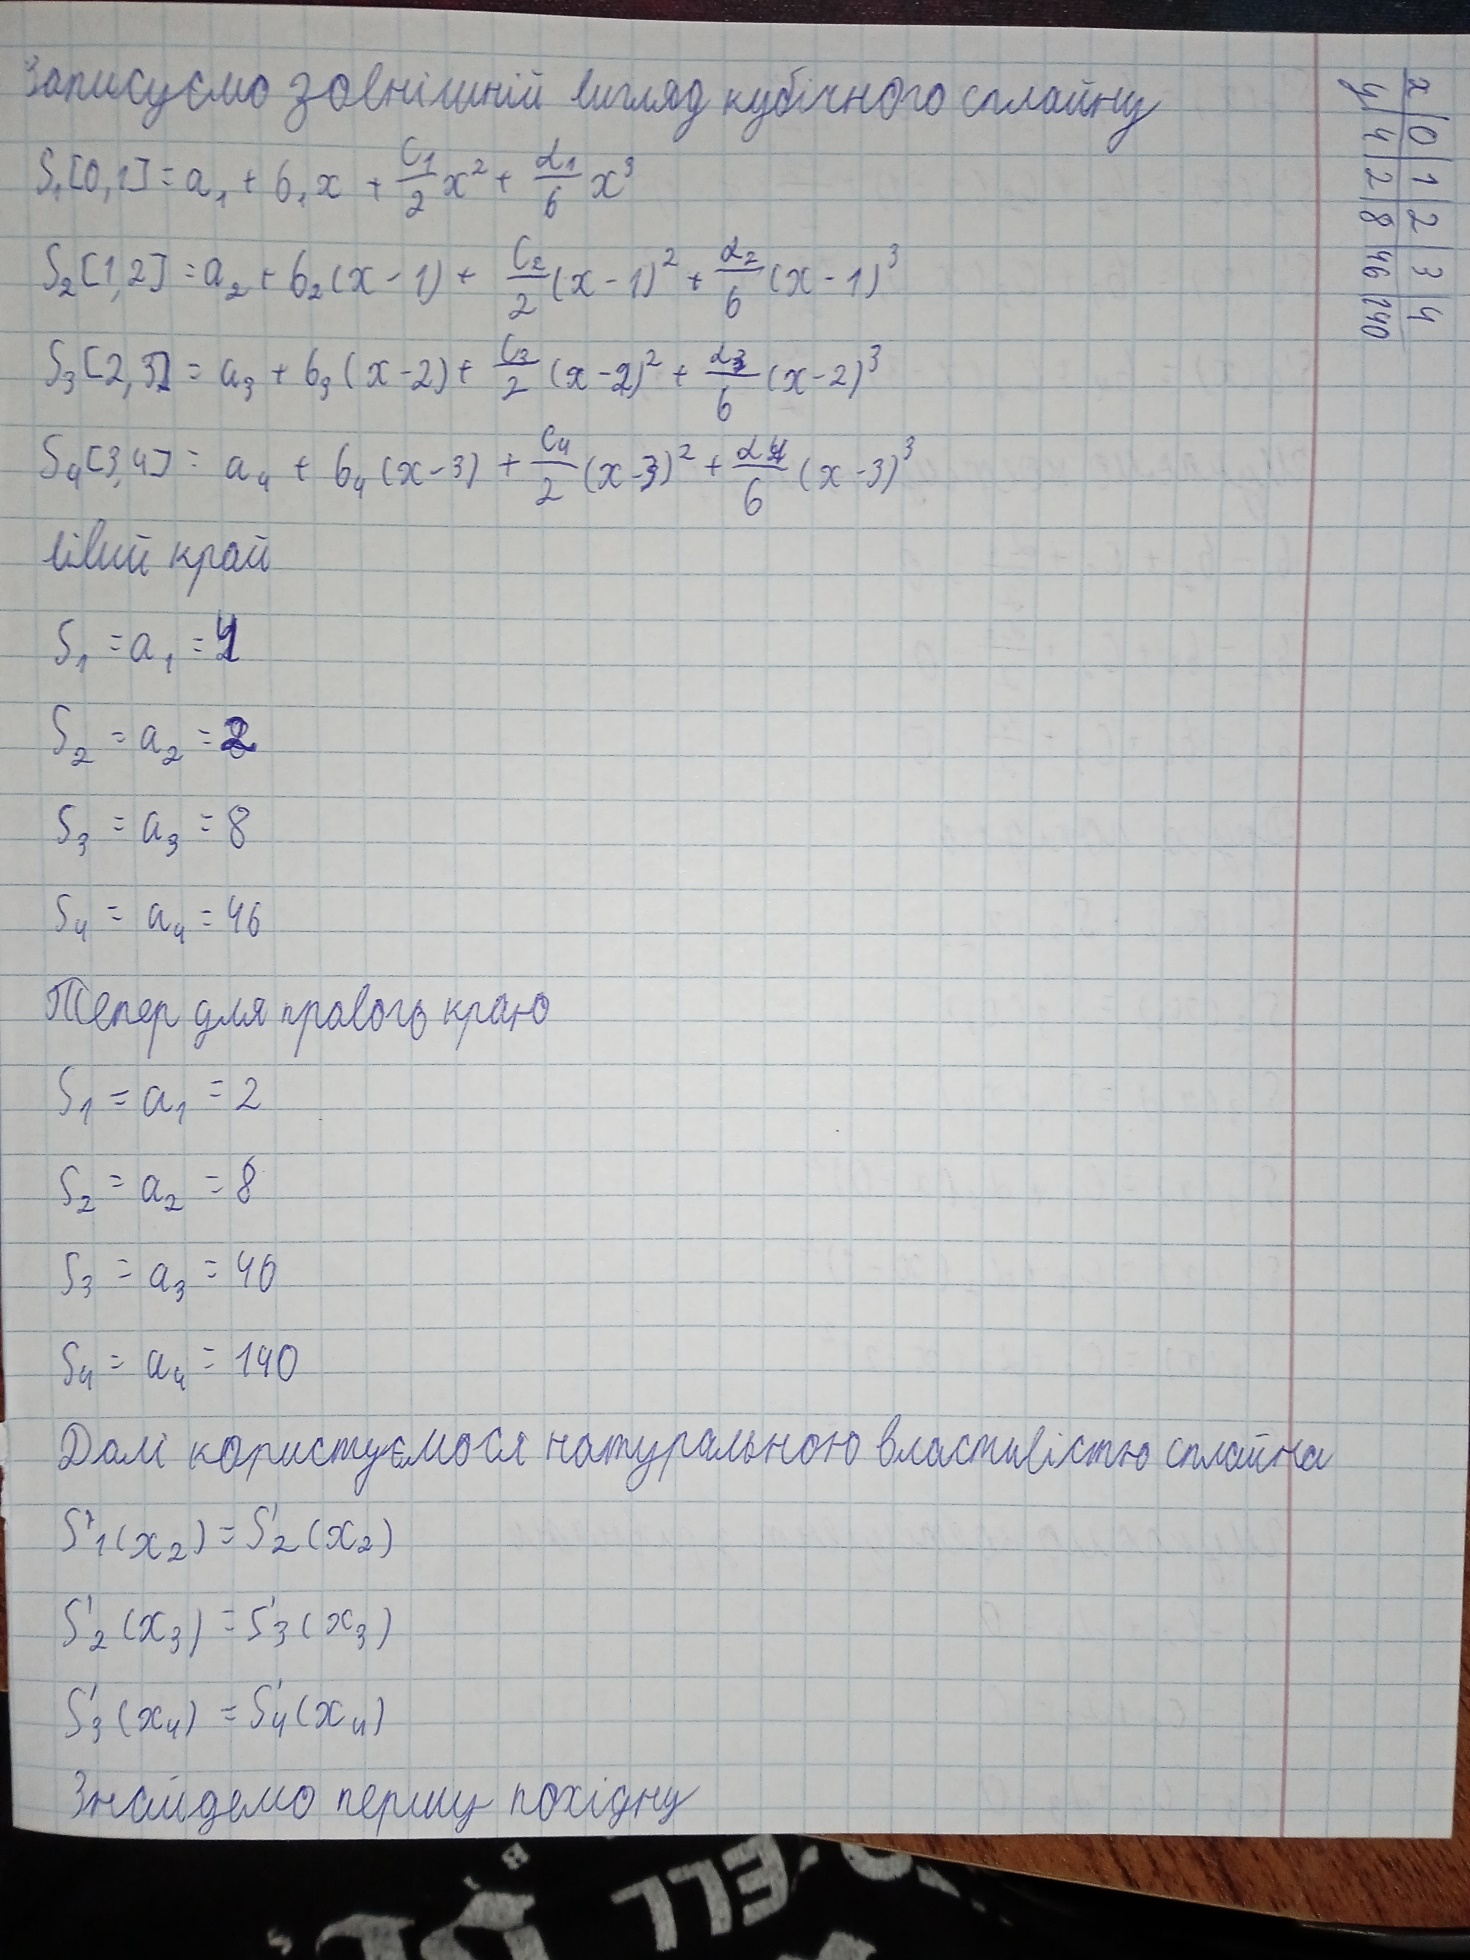 Записуємо зовнішній вигляд кубічного сплайну
S₁[0,1] = a₁ + b₁x + c₁/2 x² + d₁/6 x³
S₂[1,2] = a₂ + b₂(x-1) + c₂/2 (x-1)² + d₂/6 (x-1)³
S₃[2,3] = a₃ + b₃(x-2) + c₃/2 (x-2)² + d₃/6 (x-2)³
S₄[3,4] = a₄ + b₄(x-3) + c₄/2 (x-3)² + d₄/6 (x-3)³
лівий край
S₁ = a₁ = 4
S₂ = a₂ = 2
S₃ = a₃ = 8
S₄ = a₄ = 46
Тепер для правого краю
S₁ = a₁ = 2
S₂ = a₂ = 8
S₃ = a₃ = 46
S₄ = a₄ = 140
Далі користуємося натуральною властивістю сплайна
S'₁(x₂) = S'₂(x₂)
S'₂(x₃) = S'₃(x₃)
S'₃(x₄) = S'₄(x₄)
Знайдемо першу похідну
x | 0 | 1 | 2 | 3 | 4
y | 4 | 2 | 8 | 46 | 140
ELL